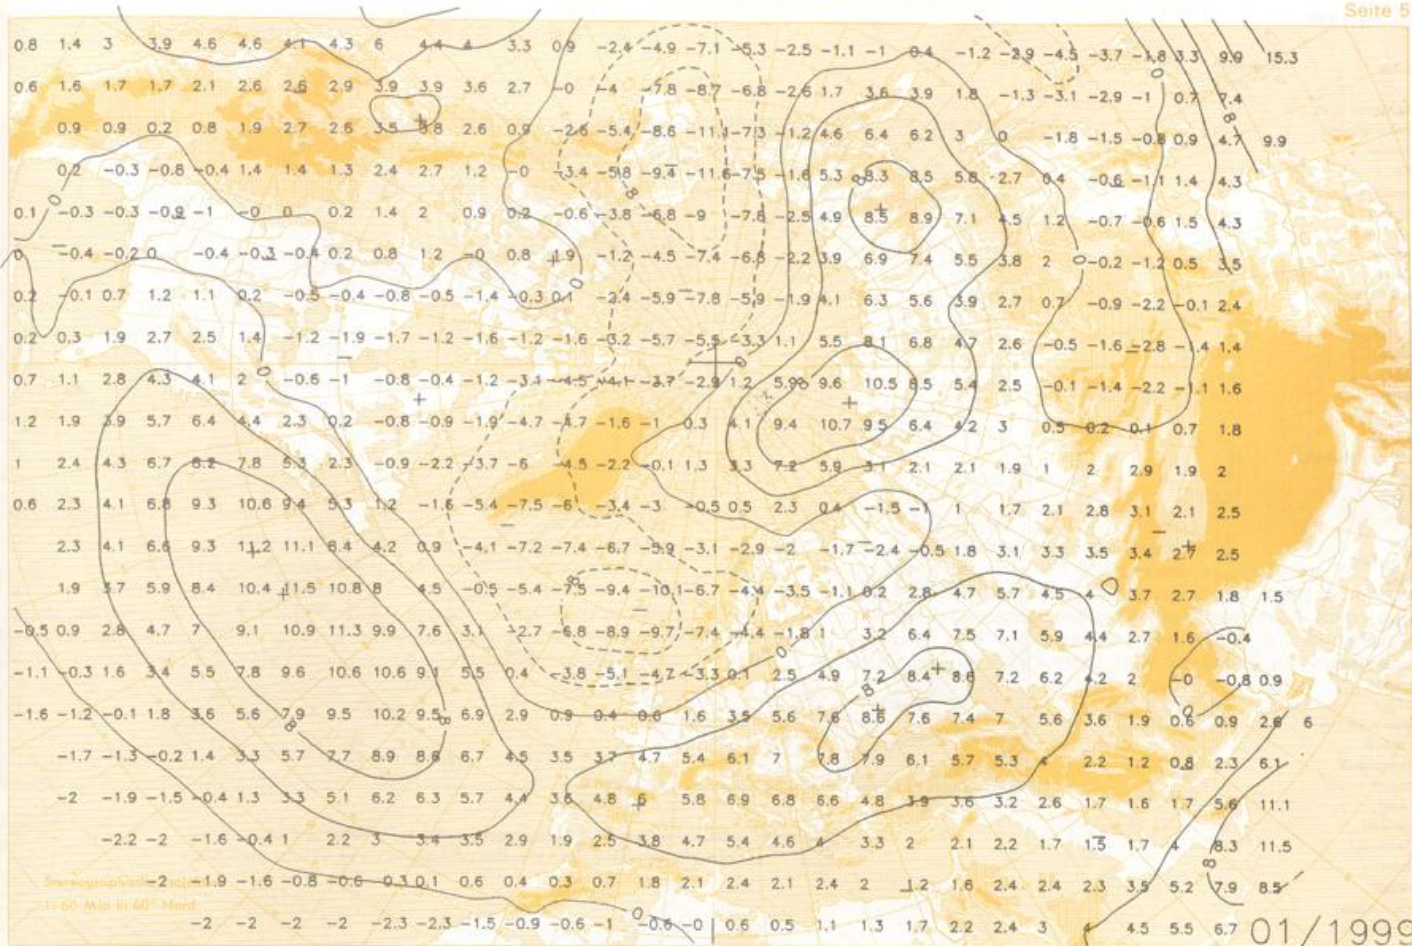 Seite 5
0.8 1.4 3 3.9 4.6 4.6 4.1 4.3 6 4.4 4 3.3 0.9 -2.4 -4.9 -7.1 -5.3 -2.5 -1.1 -1 0.4 -1.2 -2.9 -4.5 -3.7 -1.8 3.3 9.9 15.3
0.6 1.6 1.7 1.7 2.1 2.6 2.6 2.9 3.9 3.9 3.6 2.7 -0 -4 -7.8 -8.7 -6.8 -2.6 1.7 3.6 3.9 1.8 -1.3 -3.1 -2.9 -1 0.7 7.4
0.9 0.9 0.2 0.8 1.9 2.7 2.6 3.5 3.8 2.6 0.9 -2.6 -5.4 -8.6 -11.1 -7.3 -1.2 4.6 6.4 6.2 3 0 -1.8 -1.5 -0.8 0.9 4.7 9.9
0.2 -0.3 -0.8 -0.4 1.4 1.4 1.3 2.4 2.7 1.2 -0 -3.4 -5.8 -9.4 -11.6 -7.5 -1.6 5.3 8.3 8.5 5.8 2.7 0.4 -0.6 -1.1 1.4 4.3
0.1 -0.3 -0.3 -0.9 -1 -0 0 0.2 1.4 2 0.9 0.2 -0.6 -3.8 -6.8 -9 -7.8 -2.5 4.9 8.5 8.9 7.1 4.5 1.2 -0.7 -0.6 1.5 4.3
0 -0.4 -0.2 0 -0.4 -0.3 -0.4 0.2 0.8 1.2 -0 0.8 1.9 -1.2 -4.5 -7.4 -6.8 -2.2 3.9 6.9 7.4 5.5 3.8 2 -0.2 -1.2 0.5 3.5
0.2 -0.1 0.7 1.2 1.1 0.2 -0.5 -0.4 -0.8 -0.5 -1.4 -0.3 0.1 -2.4 -5.9 -7.8 -5.9 -1.9 4.1 6.3 5.6 3.9 2.7 0.7 -0.9 -2.2 -0.1 2.4
0.2 0.3 1.9 2.7 2.5 1.4 -1.2 -1.9 -1.7 -1.2 -1.6 -1.2 -1.6 -3.2 -5.7 -5.5 -3.3 1.1 5.5 8.1 6.8 4.7 2.6 -0.5 -1.6 -2.8 -1.4 1.4
0.7 1.1 2.8 4.3 4.1 2 -0.6 -1 -0.8 -0.4 -1.2 -3.1 -4.5 -4.1 -3.7 -2.9 1.2 5.9 9.6 10.5 8.5 5.4 2.5 -0.1 -1.4 -2.2 -1.1 1.6
1.2 1.9 3.9 5.7 6.4 4.4 2.3 0.2 -0.8 -0.9 -1.9 -4.7 -4.7 -1.6 -1 0.3 4.1 9.4 10.7 9.5 6.4 4.2 3 0.5 0.2 0.1 0.7 1.8
1 2.4 4.3 6.7 8.2 7.8 5.3 2.3 -0.9 -2.2 -3.7 -6 -4.5 -2.2 -0.1 1.3 3.3 7.2 5.9 3.1 2.1 2.1 1.9 1 2 2.9 1.9 2
0.6 2.3 4.1 6.8 9.3 10.6 9.4 5.3 1.2 -1.6 -5.4 -7.5 -6 -3.4 -3 -0.5 0.5 2.3 0.4 -1.5 -1 1 1.7 2.1 2.8 3.1 2.1 2.5
2.3 4.1 6.6 9.3 11.2 11.1 8.4 4.2 0.9 -4.1 -7.2 -7.4 -6.7 -5.9 -3.1 -2.9 -2 -1.7 -2.4 -0.5 1.8 3.1 3.3 3.5 3.4 2.7 2.5
1.9 3.7 5.9 8.4 10.4 11.5 10.8 8 4.5 -0.5 -5.4 -7.5 -9.4 -10.1 -6.7 -4.4 -3.5 -1.1 0.2 2.8 4.7 5.7 4.5 4 3.7 2.7 1.8 1.5
-0.5 0.9 2.8 4.7 7 9.1 10.9 11.3 9.9 7.6 3.1 -2.7 -6.8 -8.9 -9.7 -7.4 -4.4 -1.8 1 3.2 6.4 7.5 7.1 5.9 4.4 2.7 1.6 -0.4
-1.1 -0.3 1.6 3.4 5.5 7.8 9.6 10.6 10.6 9.1 5.5 0.4 -3.8 -5.1 -4.7 -3.3 0.1 2.5 4.9 7.2 8.4 8.6 7.2 6.2 4.2 2 -0 -0.8 0.9
-1.6 -1.2 -0.1 1.8 3.6 5.6 7.9 9.5 10.2 9.5 6.9 2.9 0.9 0.4 0.6 1.6 3.5 5.6 7.6 8.6 7.6 7.4 7 5.6 3.6 1.9 0.6 0.9 2.6 6
-1.7 -1.3 -0.2 1.4 3.3 5.7 7.7 8.9 8.6 6.7 4.5 3.5 3.7 4.7 5.4 6.1 7 7.8 7.9 6.1 5.7 5.3 4 2.2 1.2 0.8 2.3 6.1
-2 -1.9 -1.5 -0.4 1.3 3.3 5.1 6.2 6.3 5.7 4.4 3.6 4.8 6 5.8 6.9 6.8 6.6 4.8 3.9 3.6 3.2 2.6 1.7 1.6 1.7 5.6 11.1
-2.2 -2 -1.6 -0.4 1 2.2 3 3.4 3.5 2.9 1.9 2.5 3.8 4.7 5.4 4.6 4 3.3 2 2.1 2.2 1.7 1.5 1.7 4 8.3 11.5
-2 -1.9 -1.6 -0.8 -0.6 -0.3 0.1 0.6 0.4 0.3 0.7 1.8 2.1 2.4 2.1 2.4 2 1.2 1.6 2.4 2.4 2.3 3.5 5.2 7.9 8.5
1:60 Mio in 60° Nord
-2 -2 -2 -2 -2.3 -2.3 -1.5 -0.9 -0.6 -1 -0.6 -0 0.6 0.5 1.1 1.3 1.7 2.2 2.4 3 4 4.5 5.5 6.7 01/1999